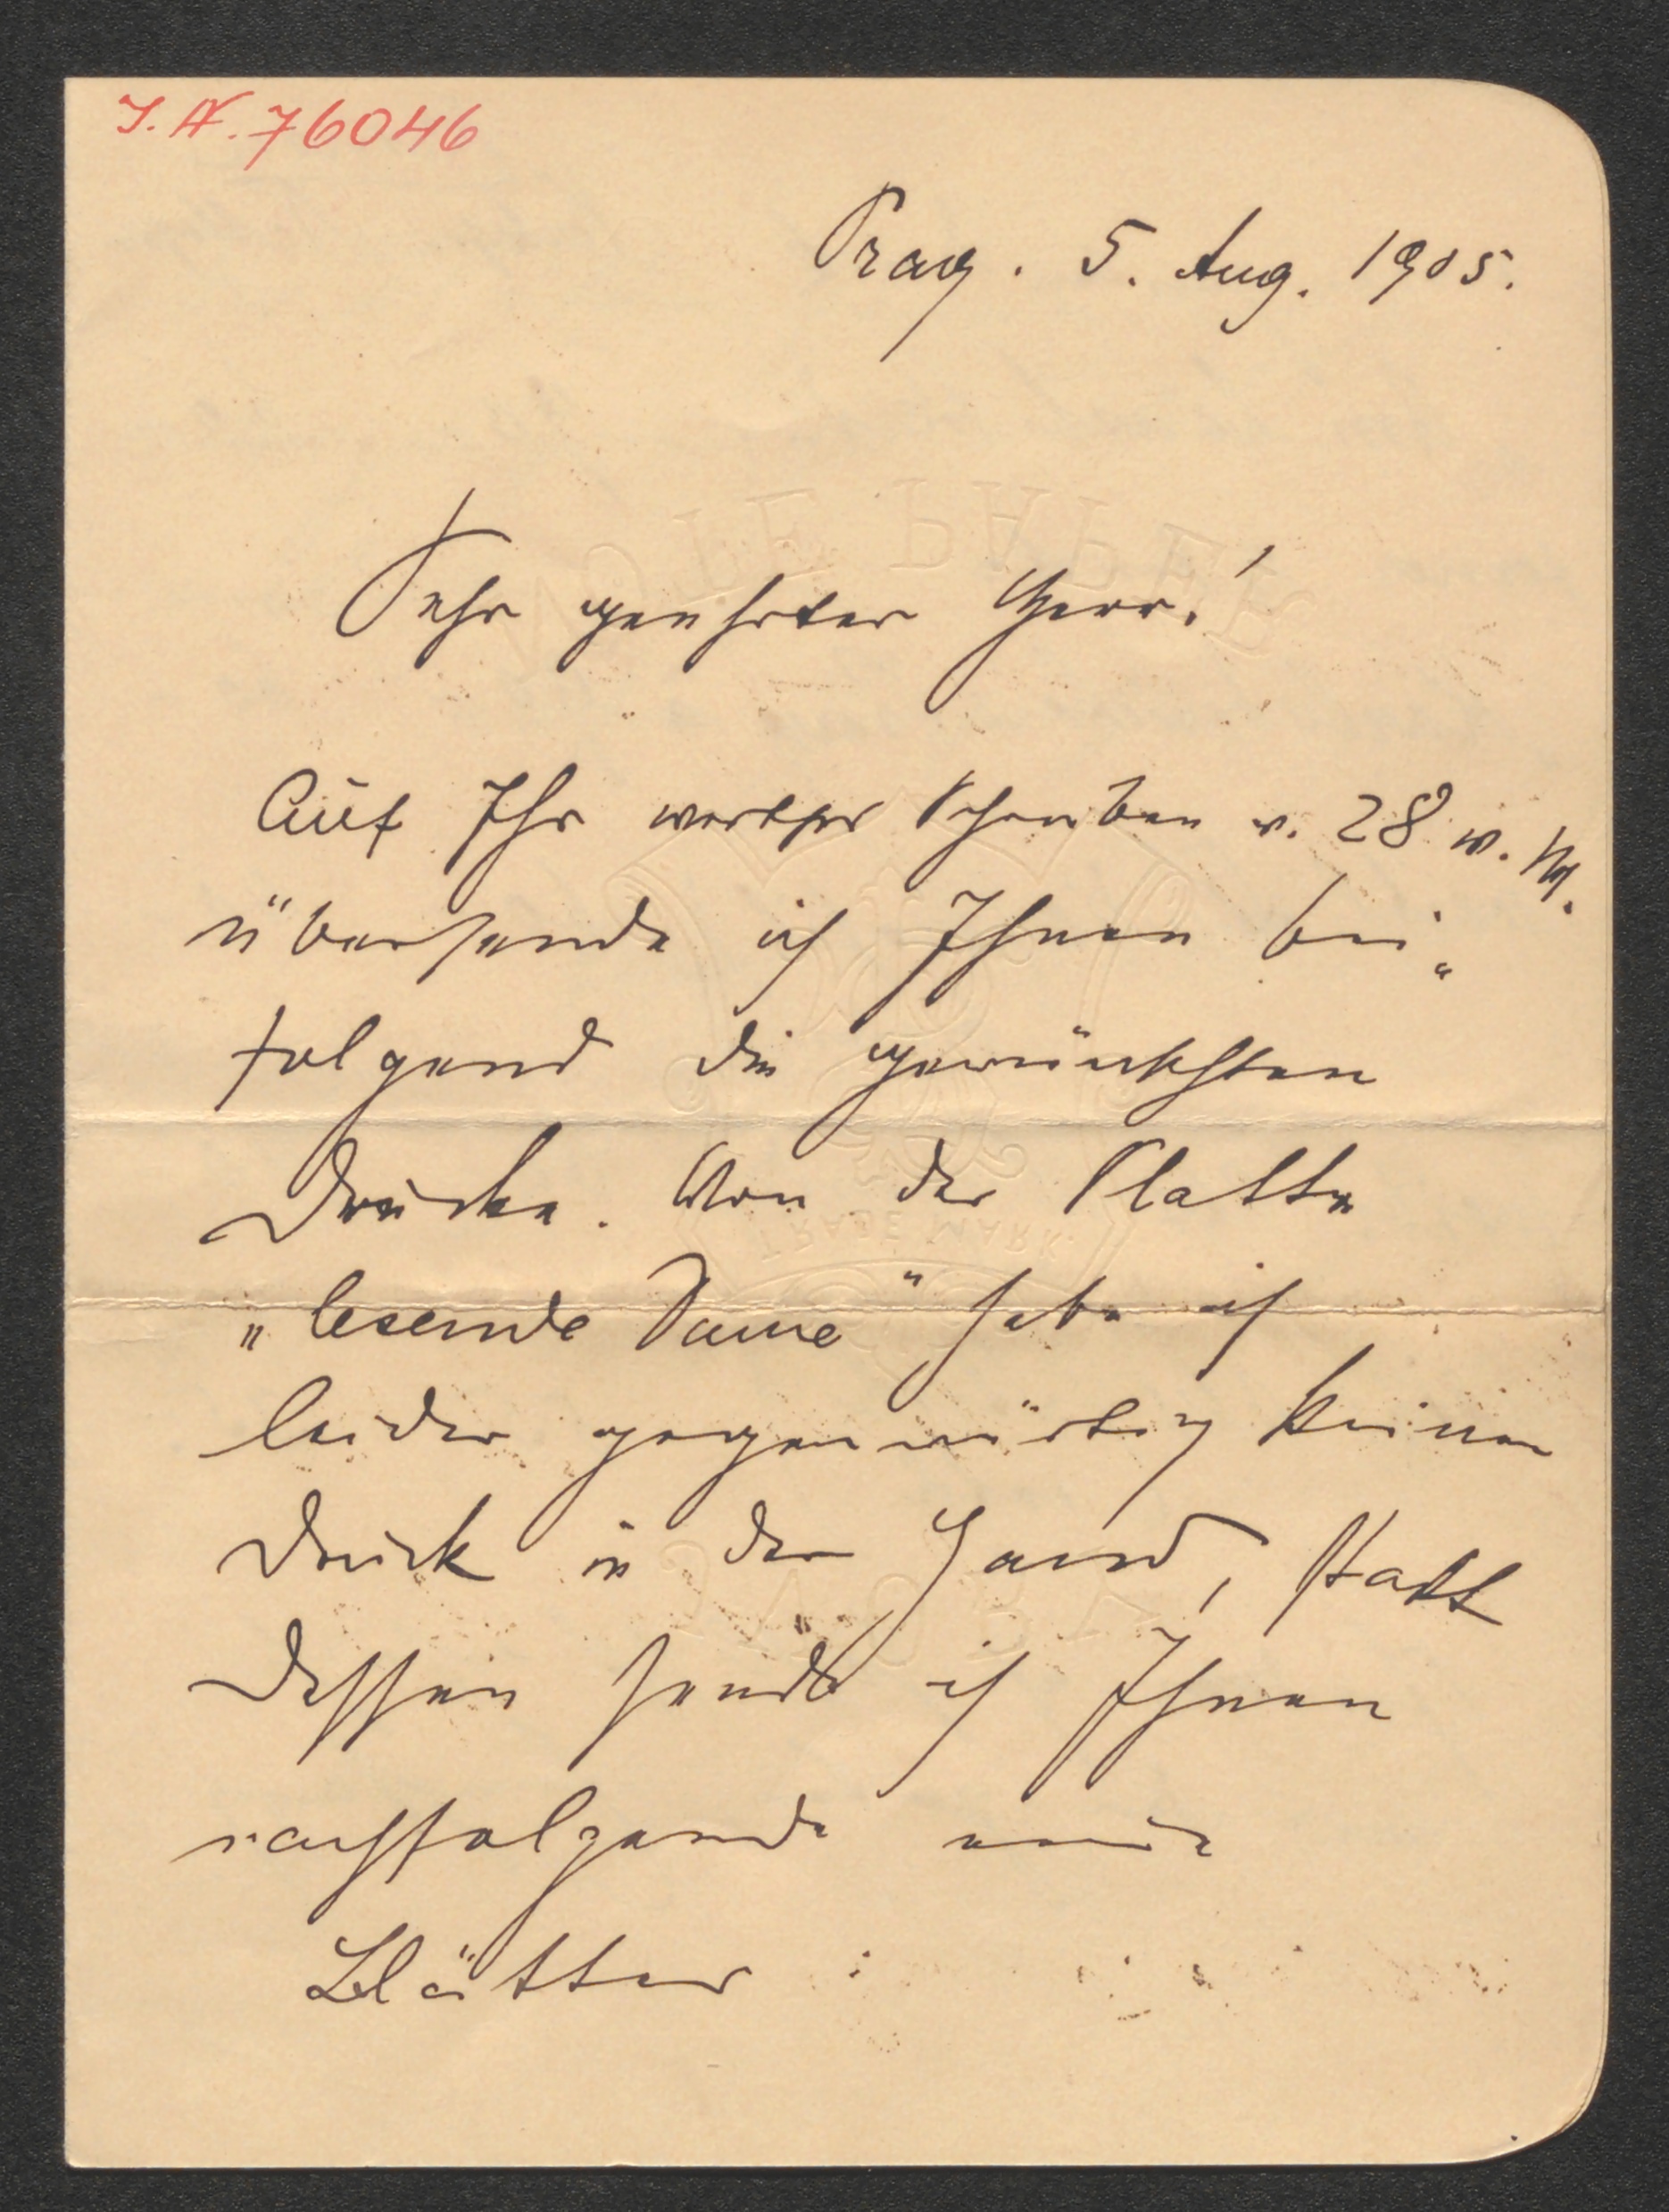 I.N. 76046
Prag. 5. Aug. 1905.
Sehr geehrter Herr!
Auf Ihr werthes Schreiben v. 28 v. M.
übersende ich Ihnen bei„
folgend die gewünschten
Drucke. Von der Platte
„lesende Dame" habe ich
leider gegenwärtig keinen
Druck in der Hand, statt
dessen sende ich Ihnen
nachfolgende
Blätter :
NOTE PAPER
TRADE MARK